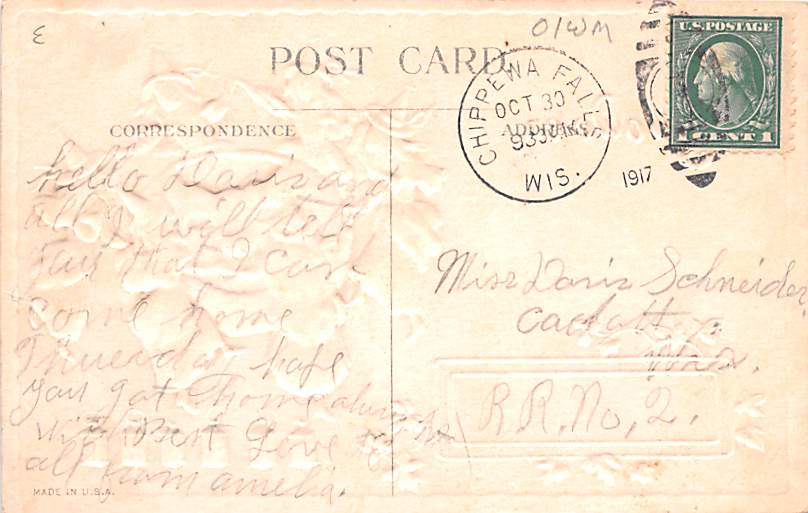 ε
01WM
POST CARD
U.S. POSTAGE
1 CENT 1
CHIPPEWA FALLS
OCT 30
930 AM
1917
WIS.
CORRESPONDENCE
ADDRESS
hello Doris and
all I will tell
you that I cant
come home
Thursday hope
you got home alright
with Best Love to
all from amelia.
Miss Doris Schneider
Cadott
Wis.
R.R. No, 2.
MADE IN U.S.A.